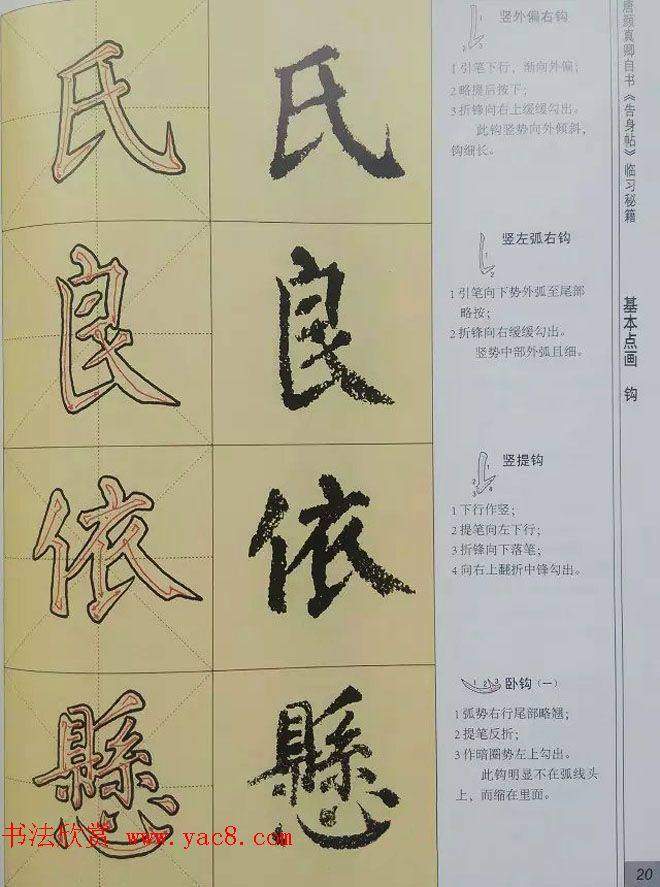 唐颜真卿自书《告身帖》临习秘籍
基本点画 钩
氏
氏
竖外偏右钩
1引笔下行，渐向外偏；
2略提后按下；
3折锋向右上缓缓勾出。
此钩竖势向外倾斜，
钩细长。
良
良
竖左弧右钩
1引笔向下势外弧至尾部
略按；
2折锋向右缓缓勾出。
竖势中部外弧且细。
依
依
竖提钩
1下行作竖；
2提笔向左下行；
3折锋向下落笔；
4向右上翻折中锋勾出。
懸
懸
卧钩（一）
1弧势右行尾部略翘；
2提笔反折；
3作暗圈势左上勾出。
此钩明显不在弧线头
上，而缩在里面。
书法欣赏 www.yac8.com
20